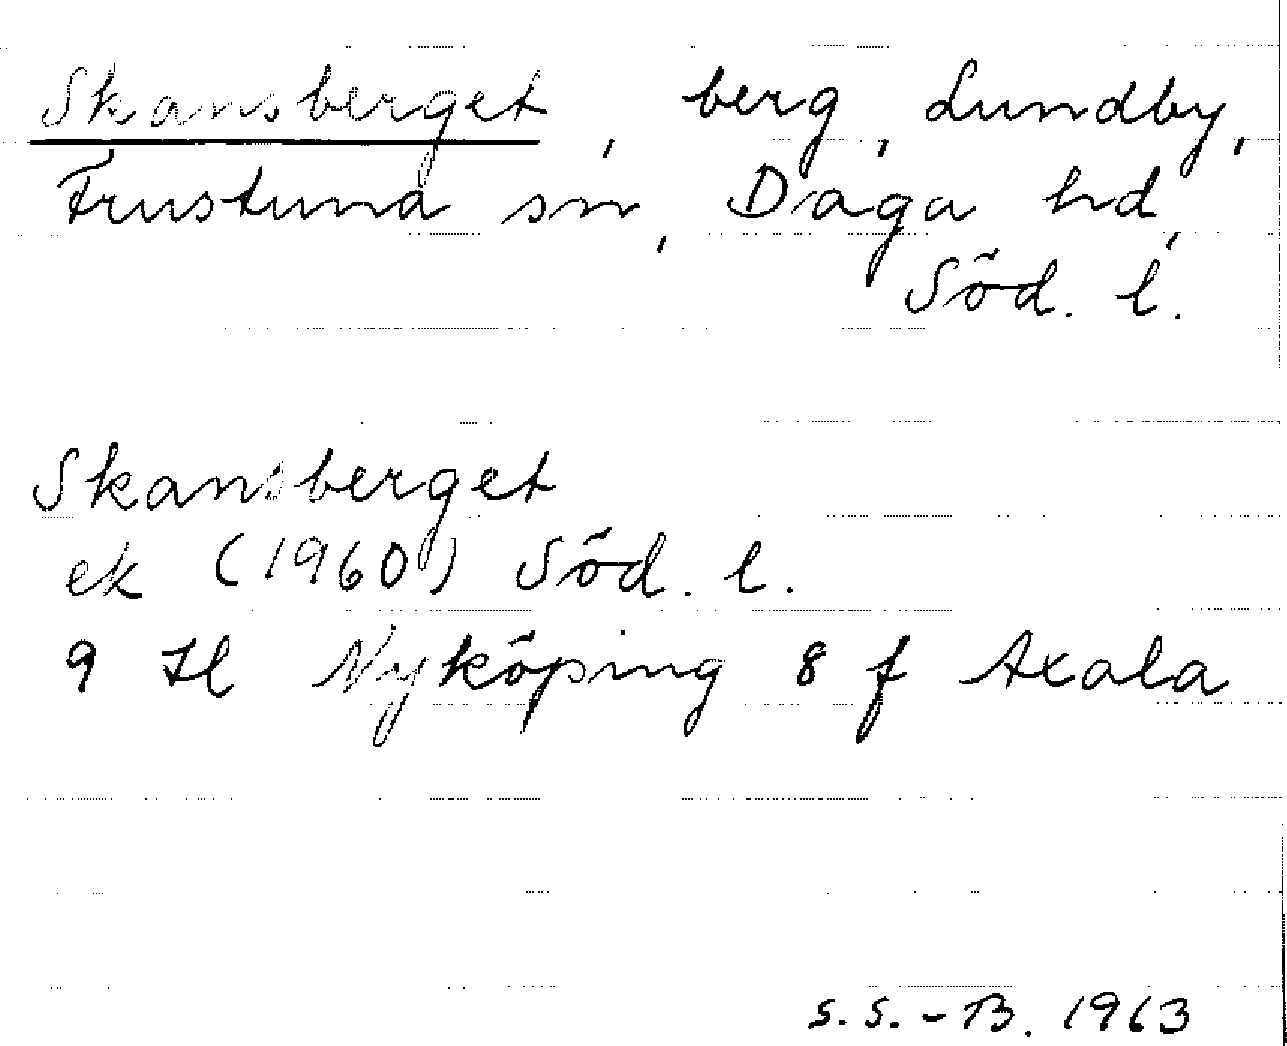 Skansberget, berg, Lundby,
Frustuna sn, Daga hd,
Söd. l.
Skansberget
ek (1960) Söd. l.
9 H Nyköping 8 f Axala
S. S.-B. 1963